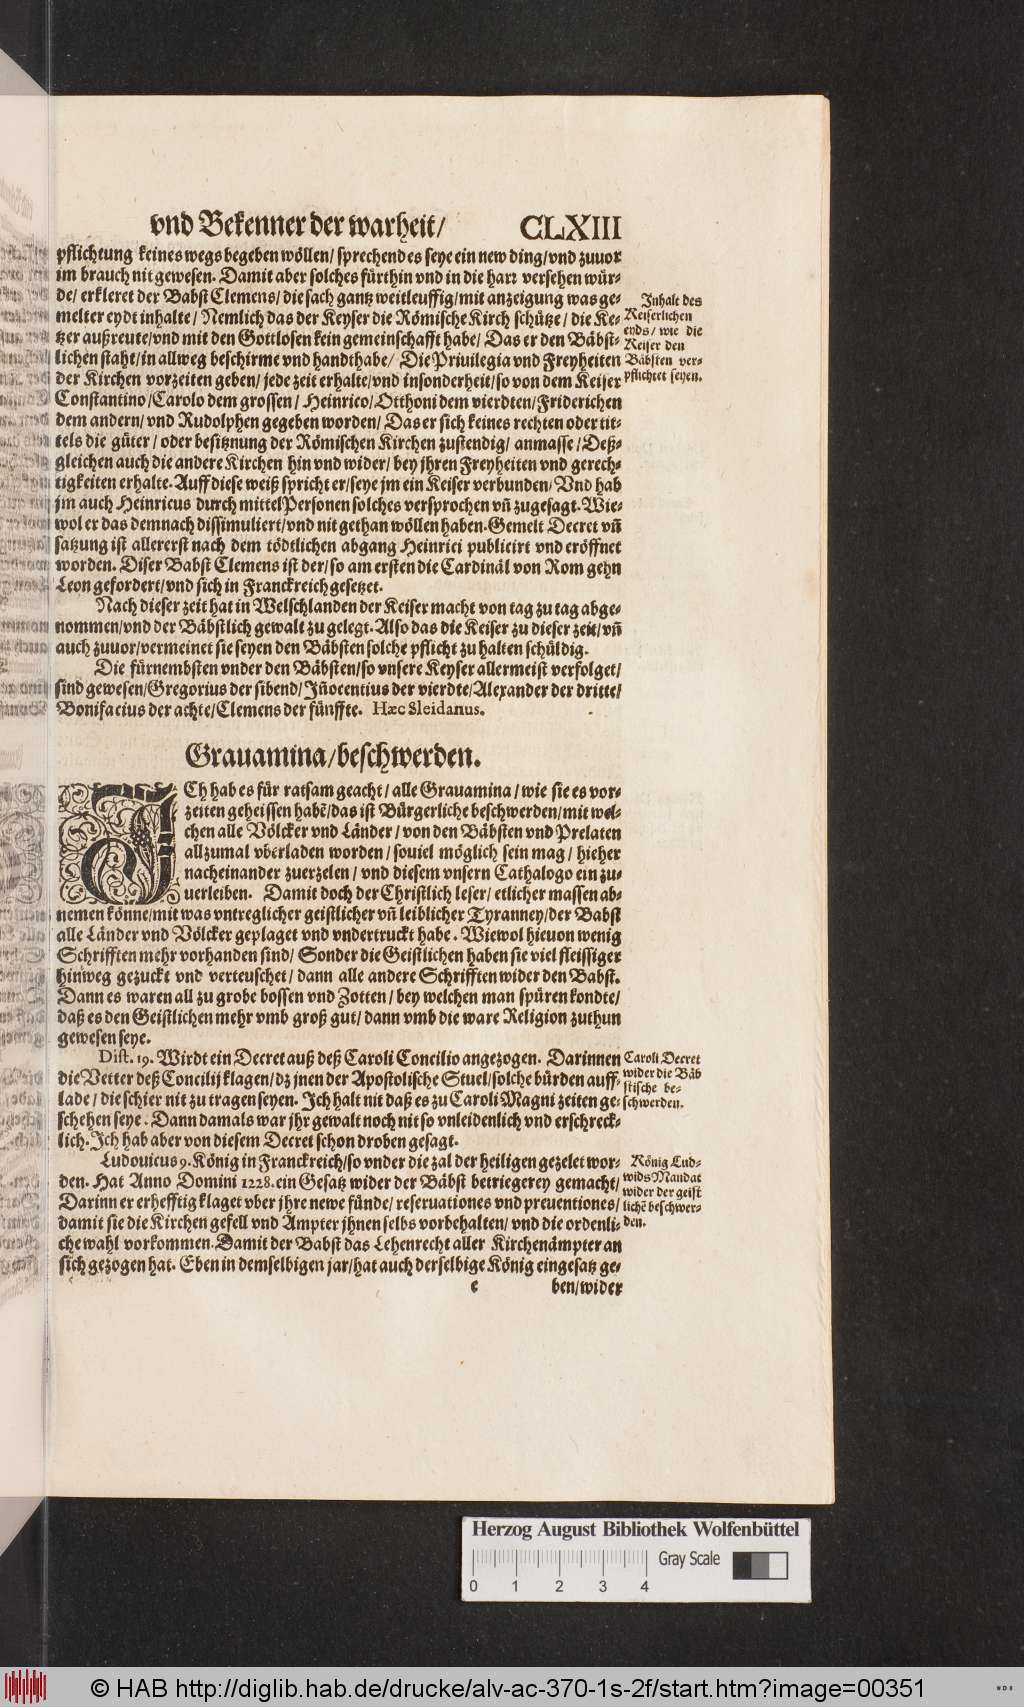 vnd Bekenner der warheit/ CLXIII
pflichtung keines wegs begeben wöllen/ sprechend es seye ein new ding/ vnd zuuor
im brauch nit gewesen. Damit aber solches fürthin vnd in die harr versehen wür-
de/ erkleret der Babst Clemens/ die sach gantz weitleuffig/ mit anzeigung was ge-
melter eydt inhalte/ Nemlich das der Keyser die Römische Kirch schütze/ die Ke-
tzer außreute/ vnd mit den Gottlosen kein gemeinschafft habe/ Das er den Bäbst-
lichen staht/ in allweg beschirme vnd handthabe/ Die Priuilegia vnd Freyheiten
der Kirchen vorzeiten geben/ jede zeit erhalte/ vnd insonderheit/ so von dem Keiser
Constantino/ Carolo dem grossen/ Heinrico/ Otthoni dem vierdten/ Friderichen
dem andern/ vnd Rudolphen gegeben worden/ Das er sich keines rechten oder tit-
tels die güter/ oder besitznung der Römischen Kirchen zustendig/ anmasse/ Deß-
gleichen auch die andere Kirchen hin vnd wider/ bey jhren Freyheiten vnd gerech-
tigkeiten erhalte. Auff diese weiß spricht er/ seye jm ein Keiser verbunden/ Vnd hab
jm auch Heinricus durch mittel Personen solches versprochen vñ zugesagt. Wie-
wol er das demnach dissimuliert/ vnd nit gethan wöllen haben. Gemelt Decret vñ
satzung ist allererst nach dem tödtlichen abgang Heinrici publicirt vnd eröffnet
worden. Diser Babst Clemens ist der/ so am ersten die Cardinäl von Rom gehn
Leon gefordert/ vnd sich in Franckreich gesetzet.
Nach dieser zeit hat in Welschlanden der Keiser macht von tag zu tag abge-
nommen/ vnd der Bäbstlich gewalt zu gelegt. Also das die Keiser zu dieser zeit/ vñ
auch zuuor/ vermeinet sie seyen den Bäbsten solche pflicht zu halten schüldig.
Die fürnembsten vnder den Bäbsten/ so vnsere Keyser allermeist verfolget/
sind gewesen/ Gregorius der sibend/ Iñocentius der vierdte/ Alexander der dritte/
Bonifacius der achte/ Clemens der fünffte. Hæc Sleidanus.
Inhalt des
Keiserlichen
eyds/ wie die
Keiser den
Bäbsten ver-
pflichtet seyen.
Grauamina/ beschwerden.
ICh hab es für ratsam geacht/ alle Grauamina/ wie sie es vor-
zeiten geheissen habẽ/ das ist Bürgerliche beschwerden/ mit wel-
chen alle Völcker vnd Länder/ von den Bäbsten vnd Prelaten
allzumal vberladen worden/ souiel möglich sein mag/ hieher
nacheinander zuerzelen/ vnd diesem vnsern Cathalogo ein zu-
uerleiben. Damit doch der Christlich leser/ etlicher massen ab-
nemen könne/ mit was vntreglicher geistlicher vñ leiblicher Tyranney/ der Babst
alle Länder vnd Völcker geplaget vnd vndertruckt habe. Wiewol hieuon wenig
Schrifften mehr vorhanden sind/ Sonder die Geistlichen haben sie viel fleissiger
hinweg gezuckt vnd verteuschet/ dann alle andere Schrifften wider den Babst.
Dann es waren all zu grobe bossen vnd Zotten/ bey welchen man spüren kondte/
daß es den Geistlichen mehr vmb groß gut/ dann vmb die ware Religion zuthun
gewesen seye.
Dist. 19. Wirdt ein Decret auß deß Caroli Concilio angezogen. Darinnen
die Vetter deß Concilij klagen/ dz jnen der Apostolische Stuel/ solche bürden auff-
lade/ die schier nit zu tragen seyen. Ich halt nit daß es zu Caroli Magni zeiten ge-
schehen seye. Dann damals war jhr gewalt noch nit so vnleidenlich vnd erschreck-
lich. Ich hab aber von diesem Decret schon droben gesagt.
Caroli Decret
wider die Bäb
stische be-
schwerden.
Ludouicus 9. König in Franckreich/ so vnder die zal der heiligen gezelet wor-
den. Hat Anno Domini 1228. ein Gesatz wider der Bäbst betriegerey gemacht/
Darinn er erhefftig klaget vber jhre newe fünde/ reseruationes vnd preuentiones/
damit sie die Kirchen gefell vnd Ämpter jhnen selbs vorbehalten/ vnd die ordenli-
che wahl vorkommen. Damit der Babst das Lehenrecht aller Kirchenämpter an
sich gezogen hat. Eben in demselbigen jar/ hat auch derselbige König eingesatz ge-
König Lud-
wids Mandat
wider der geist
lichẽ beschwer-
den.
e ben/ wider
Herzog August Bibliothek Wolfenbüttel
Gray Scale
0 1 2 3 4
© HAB http://diglib.hab.de/drucke/alv-ac-370-1s-2f/start.htm?image=00351
WDB